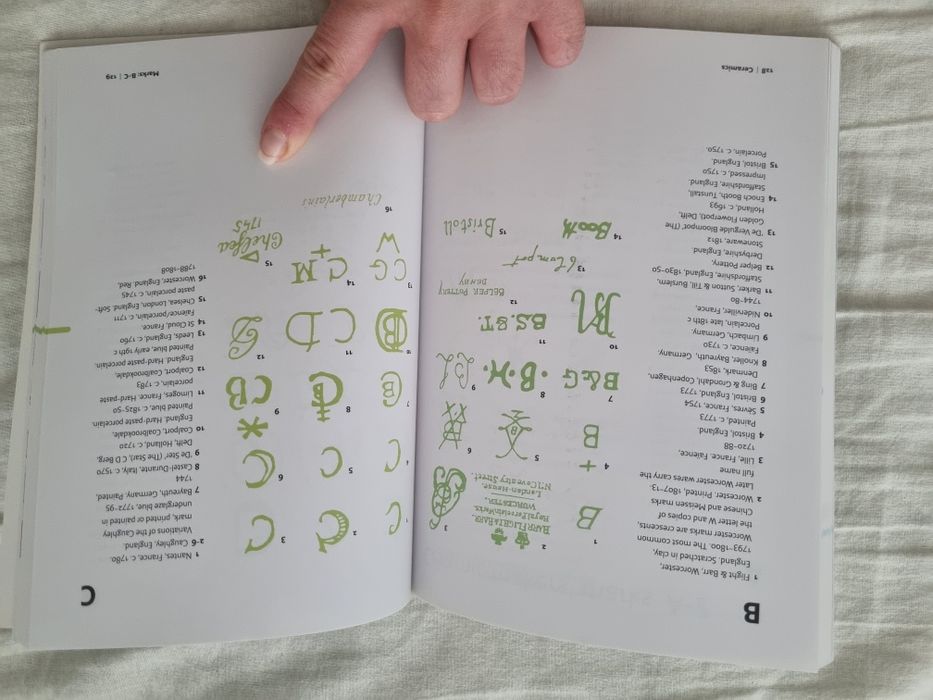 B
1 Flight & Barr, Worcester,
England. Scratched in clay,
1793-1800. The most common
Worcester marks are crescents,
the letter W and copies of
Chinese and Meissen marks
2 Worcester. Printed, 1807-13.
Later Worcester wares carry the
full name
3 Lille, France. Faience,
1720-88
4 Bristol, England.
Painted, c. 1773
5 Sèvres, France, 1754
6 Bristol, England, 1773
7 Bing & Grondahl, Copenhagen,
Denmark, 1853
8 Knoller, Bayreuth, Germany.
Faience, c. 1730
9 Limbach, Germany.
Porcelain, late 18th c
10 Niderviller, France,
1744-80
11 Barker, Sutton & Till, Burslem,
Staffordshire, England, 1830-50
12 Belper Pottery,
Derbyshire, England.
Stoneware, 1812
13 'De Vergulde Bloompot', (The
Golden Flowerpot), Delft,
Holland, c. 1693
14 Enoch Booth, Tunstall,
Staffordshire, England.
Impressed, c. 1750
15 Bristol, England.
Porcelain, c. 1750.
B
1
2
BARR FLIGHT & BARR.
Royal Porcelain Works.
WORCESTER.
London-House.
N°1 Coventry Street.
3
B
+
4
B
5
6
B&G
7
·B·H·
8
BL
9
10
BS.&T.
11
BELPER POTTERY
DENBY
12
blompot
13
Booth
14
Bristoll
15
128 | Ceramics
C
C
1
C
2
C
3
C
4
C
5
C
6
CB
7
8
CB
*
9
B
10
CD
11
12
CG
W
13
C M
+
14
Chelsea
1745
15
Chamberlains
16
1 Nantes, France, c. 1780.
2-6 Caughley, England.
Variations of the Caughley
mark, printed or painted in
underglaze blue, 1772-95
7 Bayreuth, Germany, Painted,
1744
8 Castel-Durante, Italy, c. 1570
9 'De Ster', (The Star), C D Berg,
Delft, Holland, c. 1720
10 Coalport, Coalbrookdale,
England. Hard-paste porcelain.
Painted blue, c. 1825-50
11 Limoges, France. Hard-paste
porcelain, c. 1783
12 Coalport, Coalbrookdale,
England. Hard-paste porcelain.
Painted blue, early 19th c
13 Leeds, England, c. 1760
14 St Cloud, France.
Faience / porcelain, c. 1711
15 Chelsea, London, England. Soft-
paste porcelain, c. 1745
16 Worcester, England. Red.
1788-1808
Marks: B-C | 129